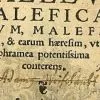 MALEFICA
VM, MALEF
, & earum hæresim, vt
phramea potentissima
conterens.